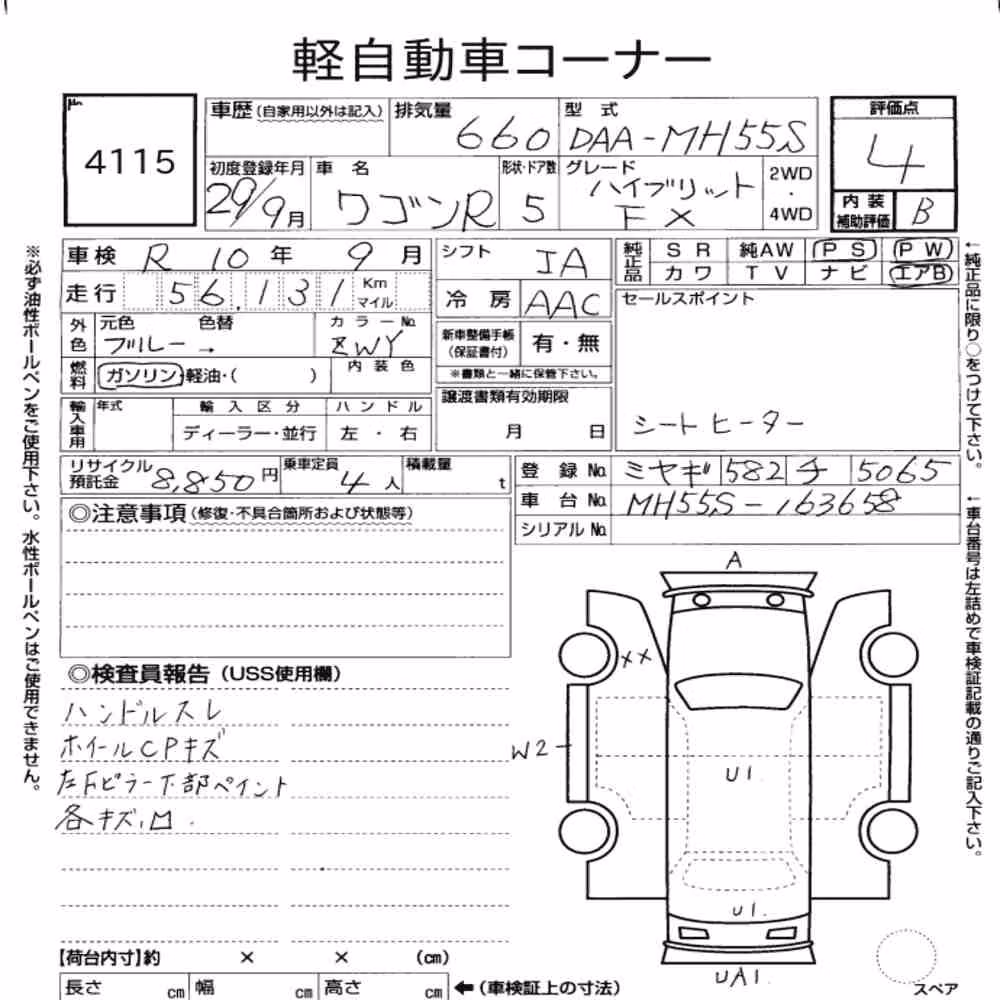 軽自動車コーナー
4115
車歴 (自家用以外は記入) 排気量 660 型式 DAA-MH55S
評価点 4
初度登録年月 29/9月 車名 ワゴンR 形状・ドア数 5 グレード ハイブリット FX 2WD・4WD
内装補助評価 B
車検 R 10年 9月
シフト IA
純正品 SR 純AW PS PW
カワ TV ナビ エアB
走行 56,131 Km マイル
冷房 AAC
セールスポイント
外色 元色 ブルー 色替 → カラーNo. ZWY
新車整備手帳 (保証書付) 有・無
※書類と一緒に保管下さい。
燃料 ガソリン・軽油・( ) 内装色
譲渡書類有効期限
月 日
シートヒーター
輸入車用 年式 輸入区分 ハンドル
ディーラー・並行 左・右
リサイクル預託金 8,850円 乗車定員 4人 積載量 t
登録No. ミヤギ 582 チ 5065
車台No. MH55S-163658
シリアルNo.
◎注意事項 (修復・不具合箇所および状態等)
◎検査員報告 (USS使用欄)
ハンドルスレ
ホイールCPキズ
下部ペイント
各キズ、凹.
A
XX
W2
U1
U1.
UA1
【荷台内寸】約 × × (cm)
長さ cm 幅 cm 高さ cm ←(車検証上の寸法)
スペア
※必ず油性ボールペンをご使用下さい。水性ボールペンはご使用できません。
←純正品に限り○をつけて下さい。
←車台番号は左詰めで車検証記載の通りご記入下さい。